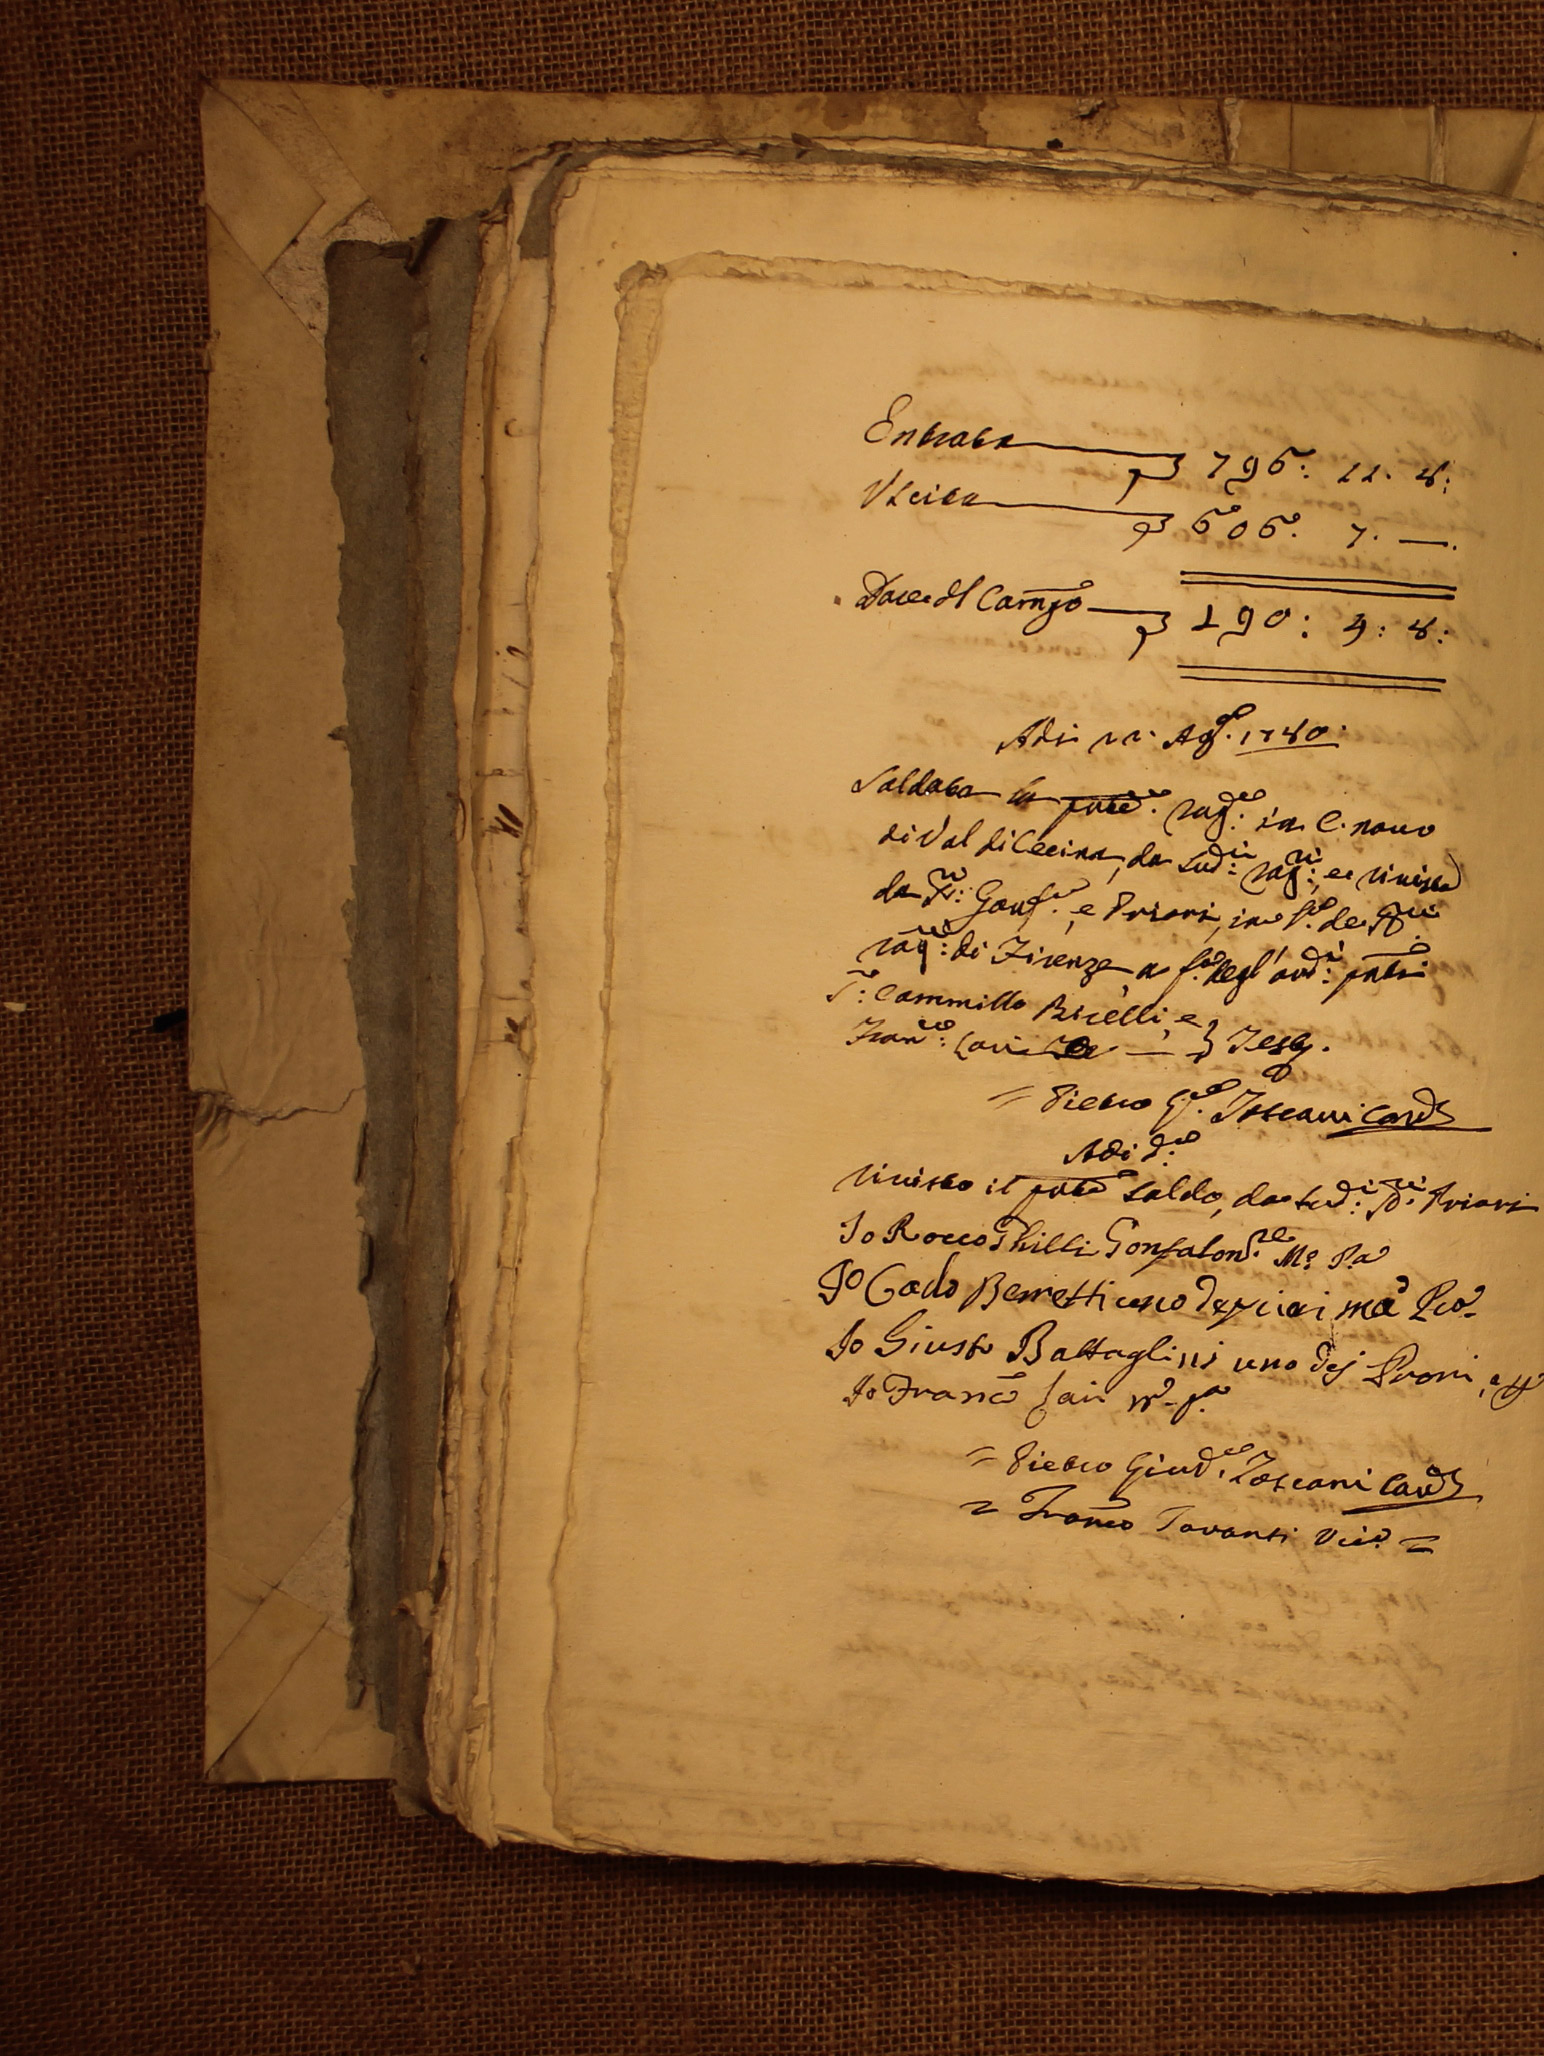 Entrata 796: 11. 8:
Uscita 606. 7. —.
Dare dl Camgo 190: 4: 8:
Adi 22. Agto. 1740.
Saldata la pnte. rage: in C. nouo
di Val di Cecina, da sudi: ragi: et riuista
da SS: Gonfre. e Priori, in fo. de
ragi: di Firenze a fo. degl' ordi: pnti
S: Cammillo Bicelli, e
Franco: Lari — Testj.
= Pietro Gdo. Toscani Cancs
Adi do:
Riuisto il pnte saldo, da sudi: SSi. Priori
Io Rocco Philli Gonfalonre. Mo Pa
Io Carlo Berretti uno de priori
Io Giusto Battaglini uno dej Priori
Io Franco Lari Mo. pa.
= Pietro Giudo. Toscani Cancs
= Franco Tavanti Vico. =